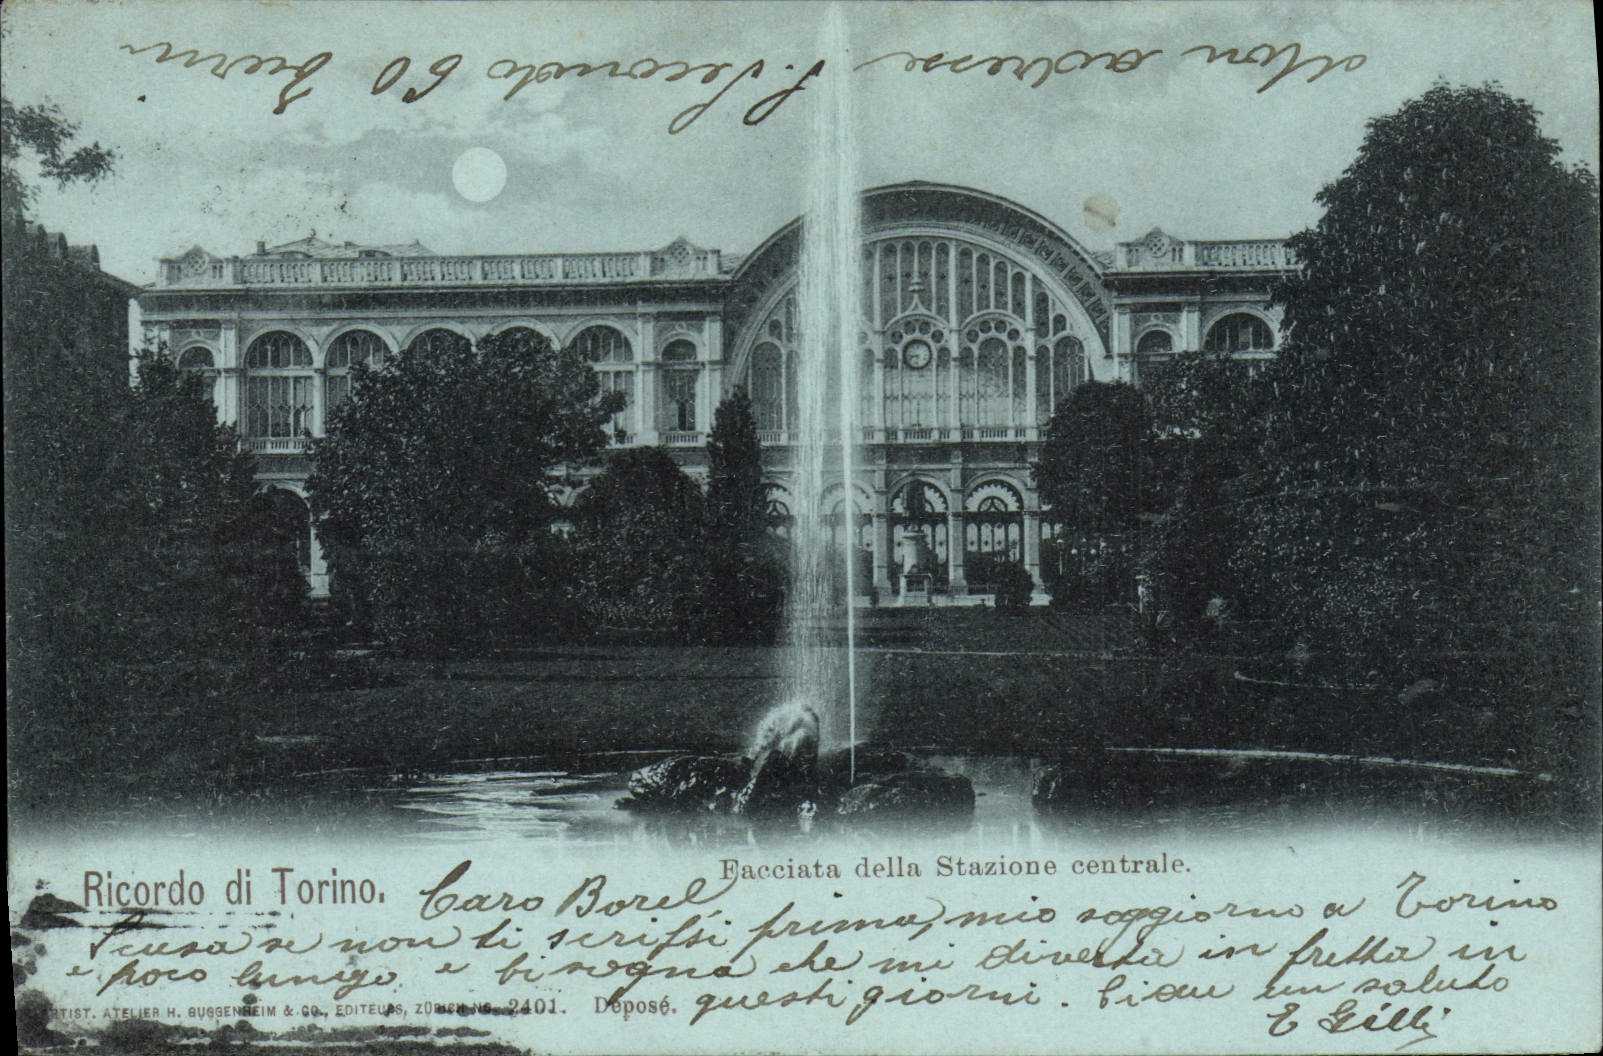 Mon adresse S. Secondo 60 Turin
Facciata della Stazione centrale.
Ricordo di Torino.
Caro Borel,
Scusa se non ti scrissi prima, mio soggiorno a Torino
è poco lungo e bisogna che mi diverta in fretta in
questi giorni. Ciau un saluto
E Gilli
ARTIST. ATELIER H. GUGGENHEIM & CO., EDITEURS, ZÜRICH NO. 2401. Déposé.